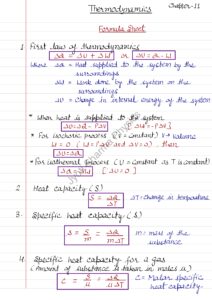 Chapter-11
Thermodynamics
Formula Sheet
1. First law of thermodynamics
ΔQ = ΔU + ΔW or ΔU = ΔQ - W
where ΔQ = Heat supplied to the system by the
surroundings
ΔW = Work done by the system on the
surroundings
ΔU = Change in internal energy of the system
* When heat is supplied to the system
ΔU = ΔQ - PΔV [ΔW = PΔV]
* For isochoric process (V = Constant) V → Volume
W = 0 (W = PΔV and ΔV = 0), then
ΔU = ΔQ
* For isothermal process (U = Constant as T is constant)
ΔQ = ΔW [ΔU = 0]
2 Heat capacity (S)
S = ΔQ/ΔT ΔT = Change in temperature
3 Specific heat capacity (s)
s = S/m = ΔQ/mΔT m = mass of the
substance
4 Specific heat capacity for a gas
(Amount of substance is taken in moles μ)
C = S/μ = ΔQ/μΔT C = Molar specific
heat capacity